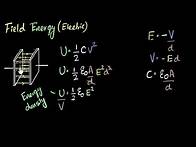 Field Energy (Electric)
U = 1/2 CV²
U = 1/2 ε₀A/d E²d²
Energy density
U/V = 1/2 ε₀E²
E = -V/d
V = -Ed
C = ε₀A/d